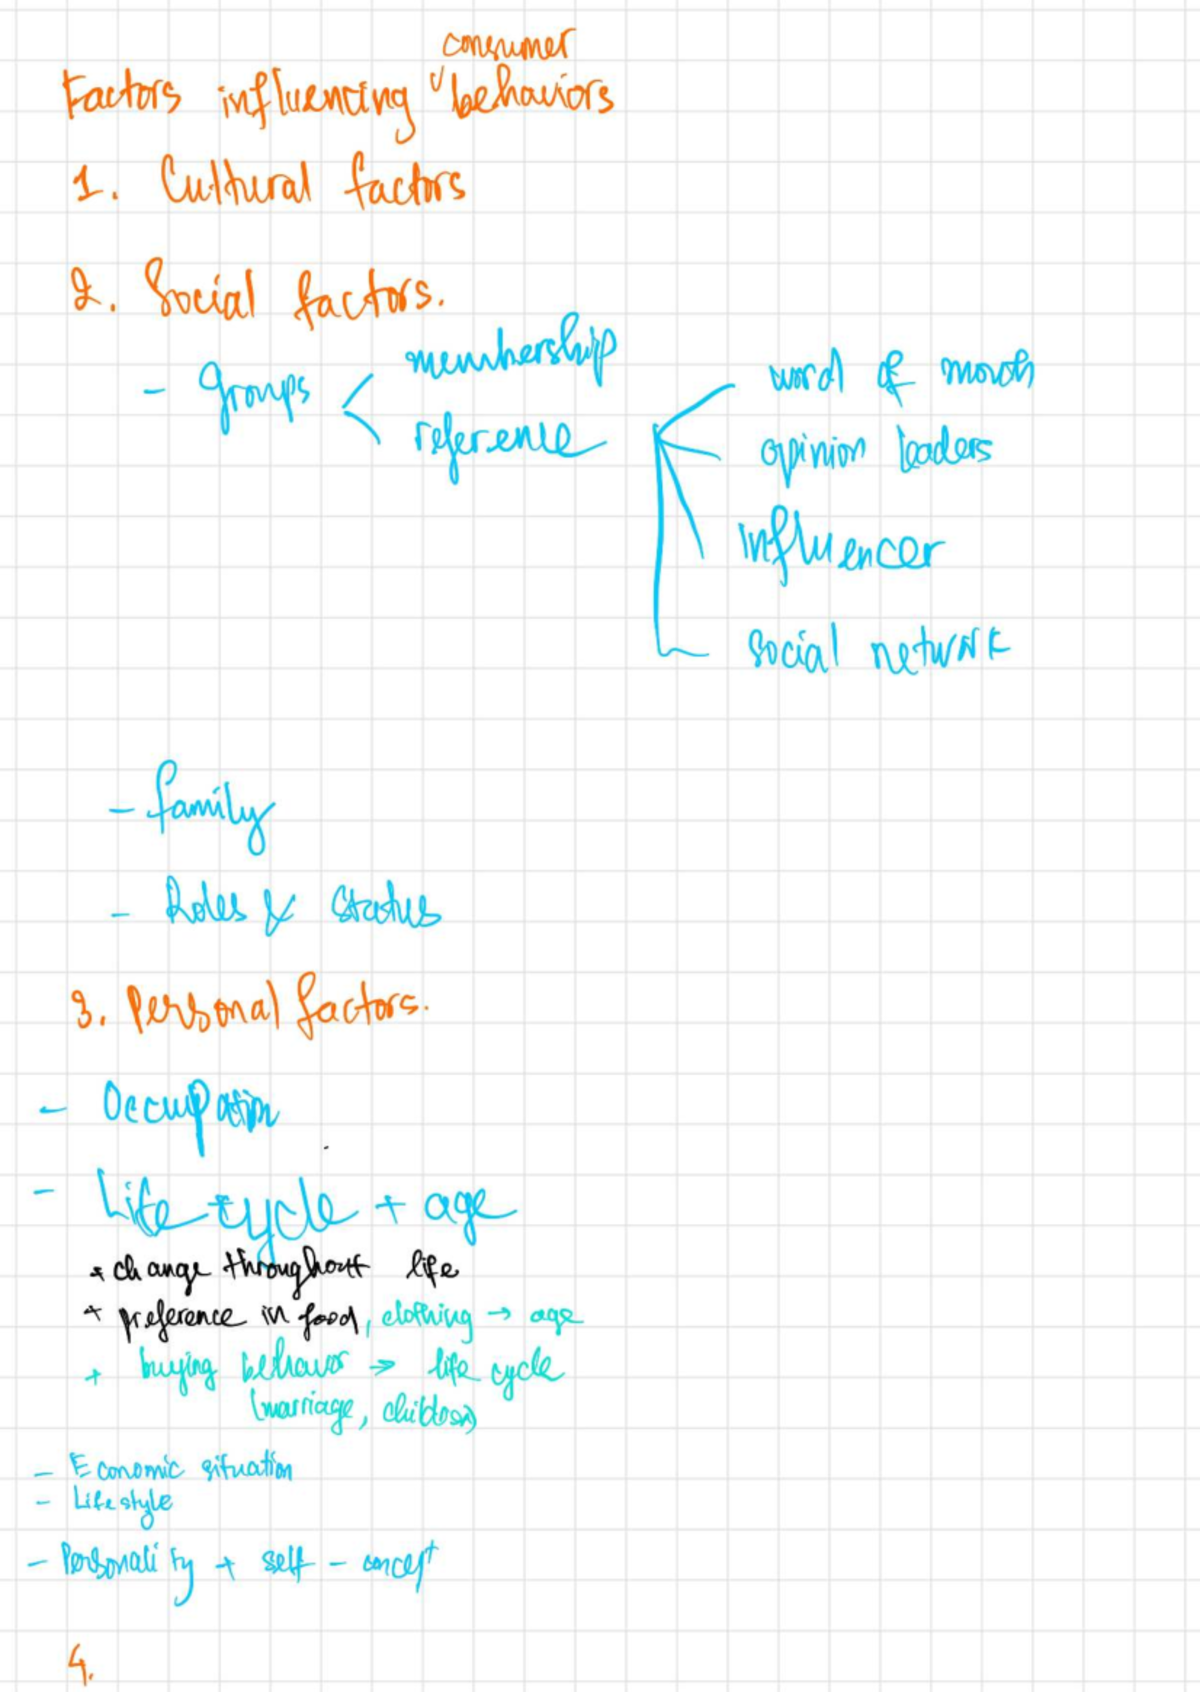 Factors influencing consumer behaviors
1. Cultural factors
2. Social factors.
- Groups < membership
reference
word of mouth
opinion leaders
influencer
social network
- family
- Roles & Status
3. Personal factors.
- Occupation
- Life cycle + age
+ change throughout life
+ preference in food, clothing → age
+ buying behavior → life cycle
(marriage, children)
- Economic situation
- Lifestyle
- Personality + self - concept
4.